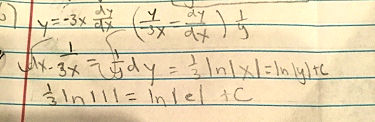 y=-3x dy/dx (y/3x = dy/dx) 1/y
∫dx · 1/3x = ∫1/y dy = 1/3 ln|x| = ln|y|+C
1/3 ln|1| = ln|e| +C